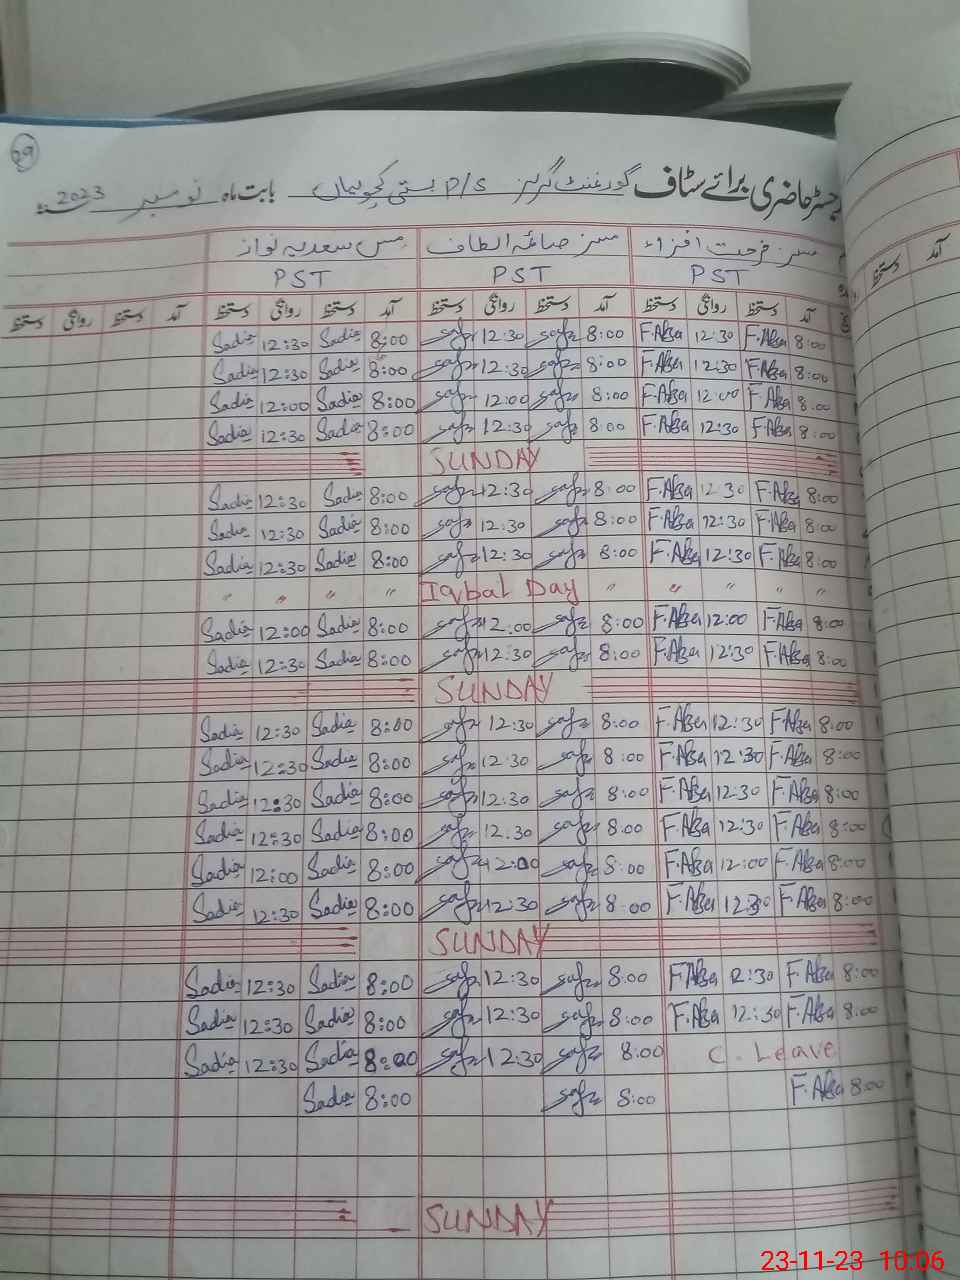 29
رجسٹر حاضری برائے سٹاف گورنمنٹ گرلز P/S بستی کچوہیاں بابت ماہ نومبر 2023ء
مسز فرحت افزاء مسز صائمہ الطاف مس سعدیہ نواز
PST PST PST
آمد دستخط روانگی دستخط آمد دستخط روانگی دستخط آمد دستخط روانگی دستخط آمد دستخط روانگی دستخط
آمد دستخط
Sadia 12:30 Sadia 8:00 safz 12:30 safz 8:00 F.Afza 12:30 F.Afza 8:00
Sadia 12:30 Sadia 8:00 safz 12:30 safz 8:00 F.Afza 12:30 F.Afza 8:00
Sadia 12:00 Sadia 8:00 safz 12:00 safz 8:00 F.Afza 12:00 F.Afza 8:00
Sadia 12:30 Sadia 8:00 safz 12:30 safz 8:00 F.Afza 12:30 F.Afza 8:00
SUNDAY
Sadia 12:30 Sadia 8:00 safz 12:30 safz 8:00 F.Afza 12:30 F.Afza 8:00
Sadia 12:30 Sadia 8:00 safz 12:30 safz 8:00 F.Afza 12:30 F.Afza 8:00
Sadia 12:30 Sadia 8:00 safz 12:30 safz 8:00 F.Afza 12:30 F.Afza 8:00
" " " " Iqbal Day " " " " "
Sadia 12:00 Sadia 8:00 safz 12:00 safz 8:00 F.Afza 12:00 F.Afza 8:00
Sadia 12:30 Sadia 8:00 safz 12:30 safz 8:00 F.Afza 12:30 F.Afza 8:00
SUNDAY
Sadia 12:30 Sadia 8:00 safz 12:30 safz 8:00 F.Afza 12:30 F.Afza 8:00
Sadia 12:30 Sadia 8:00 safz 12:30 safz 8:00 F.Afza 12:30 F.Afza 8:00
Sadia 12:30 Sadia 8:00 safz 12:30 safz 8:00 F.Afza 12:30 F.Afza 8:00
Sadia 12:30 Sadia 8:00 safz 12:30 safz 8:00 F.Afza 12:30 F.Afza 8:00
Sadia 12:00 Sadia 8:00 safz 12:00 safz 8:00 F.Afza 12:00 F.Afza 8:00
Sadia 12:30 Sadia 8:00 safz 12:30 safz 8:00 F.Afza 12:30 F.Afza 8:00
SUNDAY
Sadia 12:30 Sadia 8:00 safz 12:30 safz 8:00 F.Afza 12:30 F.Afza 8:00
Sadia 12:30 Sadia 8:00 safz 12:30 safz 8:00 F.Afza 12:30 F.Afza 8:00
Sadia 12:30 Sadia 8:00 safz 12:30 safz 8:00 C. Leave
Sadia 8:00 safz 8:00 F.Afza 8:00
SUNDAY
23-11-23 10:06